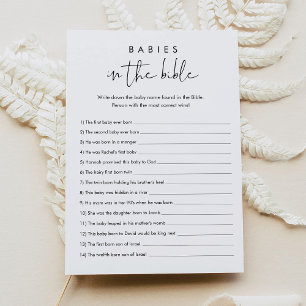 BABIES
in the bible
Write down the baby name found in the Bible.
Person with the most correct wins!
1) The first baby ever born
2) The second baby ever born
3) He was born in a manger
4) He was Rachel's first baby
5) Hannah promised this baby to God
6) The hairy first born twin
7) This twin born holding his brother's heel
8) This baby was hidden in a river
9) His mom was in her 90's when he was born
10) She was the daughter born to
11) This baby leaped in his mother's womb
12) This baby born to David would be king next
13) The first born son of Israel
14) The twelfth born son of Israel